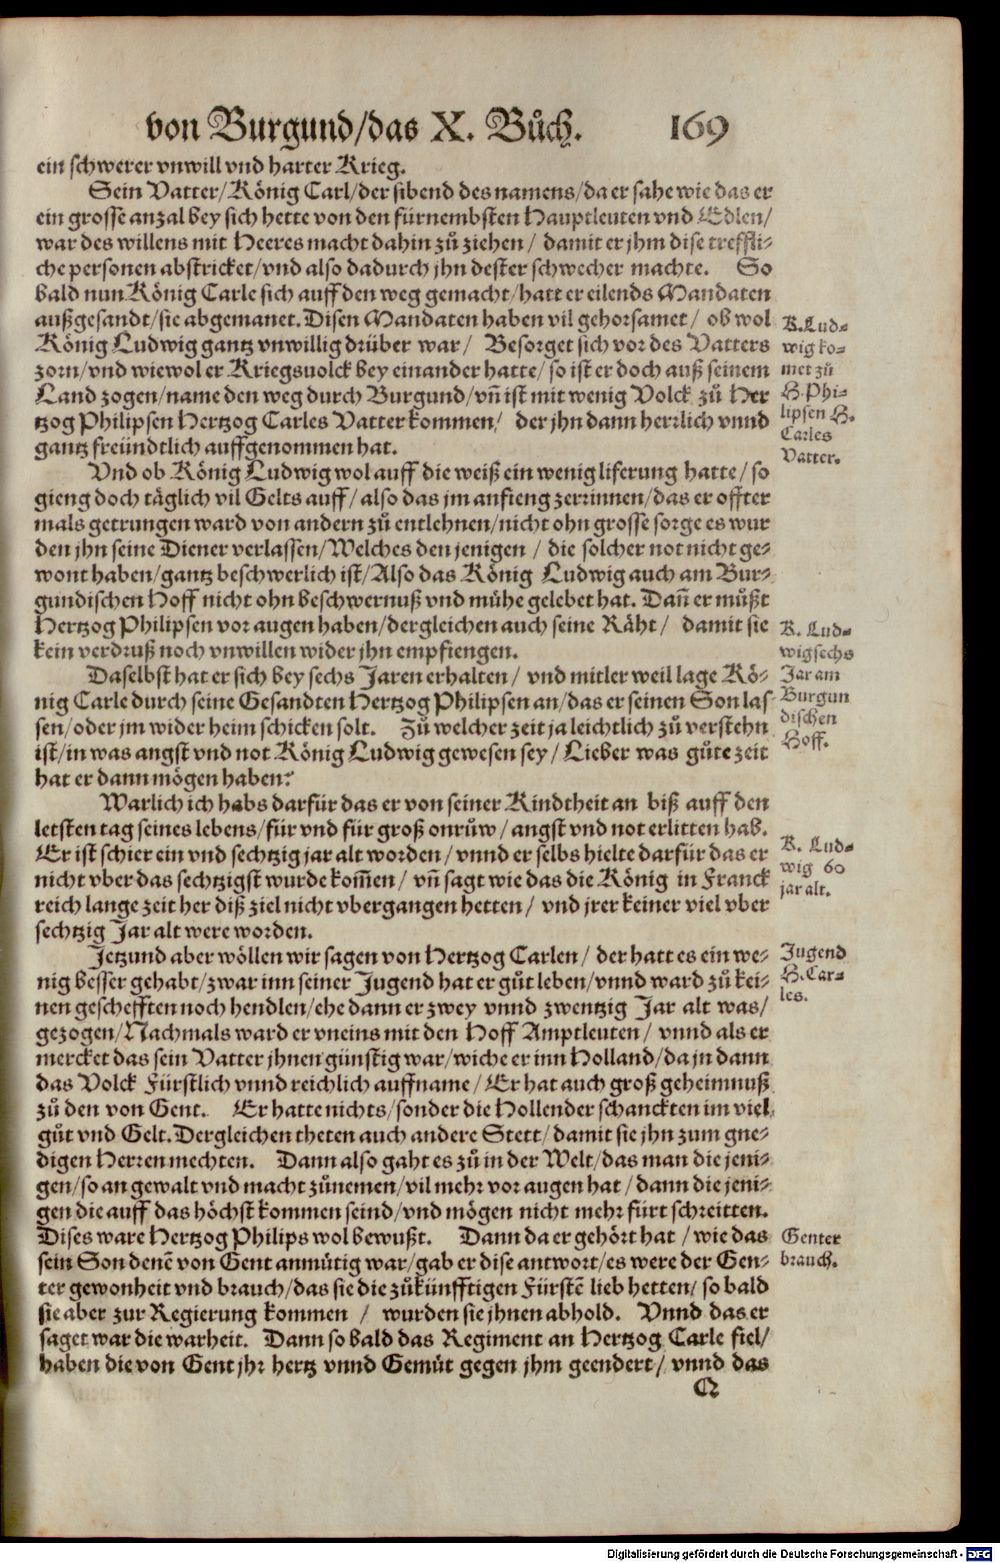 von Burgund/das X. Bůch. 169
ein schwerer vnwill vnd harter Krieg.
Sein Vatter/König Carl/der sibend des namens/da er sahe wie das er
ein grosse͂ anzal bey sich hette von den fürnembsten Hauptleuten vnd Edlen/
war des willens mit Heeres macht dahin zů ziehen/ damit er jhm dise treffli⸗
che personen abstricket/vnd also dadurch jhn dester schwecher machte. So
bald nun König Carle sich auff den weg gemacht/hatt er eilends Mandaten
außgesandt/sie abgemanet. Disen Mandaten haben vil gehorsamet/ ob wol
König Ludwig gantz vnwillig drüber war/ Besorget sich vor des Vatters
zorn/vnd wiewol er Kriegsuolck bey einander hatte/so ist er doch auß seinem
Land zogen/name den weg durch Burgund/vn͂ ist mit wenig Volck zů Her
tzog Philipsen Hertzog Carles Vatter kommen/ der jhn dann herzlich vnnd
gantz freündtlich auffgenommen hat.
K.Lud⸗
wig ko⸗
met zů
H.Phi⸗
lipsen H.
Carles
Vatter.
Vnd ob König Ludwig wol auff die weiß ein wenig liferung hatte/so
gieng doch täglich vil Gelts auff/also das jm anfieng zerrinnen/das er offter
mals getrungen ward von andern zů entlehnen/nicht ohn grosse sorge es wur
den jhn seine Diener verlassen/Welches den jenigen / die solcher not nicht ge⸗
wont haben/gantz beschwerlich ist/Also das König Ludwig auch am Bur⸗
gundischen Hoff nicht ohn beschwernuß vnd mühe gelebet hat. Dan͂ er můßt
Hertzog Philipsen vor augen haben/dergleichen auch seine Räht/ damit sie
kein verdruß noch vnwillen wider jhn empfiengen.
Daselbst hat er sich bey sechs Jaren erhalten/ vnd mitler weil lage Kö⸗
nig Carle durch seine Gesandten Hertzog Philipsen an/das er seinen Son las
sen/oder jm wider heim schicken solt. Zů welcher zeit ja leichtlich zů verstehn
ist/in was angst vnd not König Ludwig gewesen sey/ Lieber was gůte zeit
hat er dann mögen haben?
K. Lud⸗
wig sechs
Jar am
Burgun
dischen
Hoff.
Warlich ich habs darfür das er von seiner Kindtheit an biß auff den
letsten tag seines lebens/für vnd für groß onrůw/angst vnd not erlitten hab.
Er ist schier ein vnd sechtzig jar alt worden/ vnnd er selbs hielte darfür das er
nicht vber das sechtzigst wurde kom͂en/ vn͂ sagt wie das die König in Franck
reich lange zeit her diß ziel nicht vbergangen hetten/ vnd jrer keiner viel vber
sechtzig Jar alt were worden.
K. Lud⸗
wig 60
jar alt.
Jetzund aber wöllen wir sagen von Hertzog Carlen/ der hatt es ein we⸗
nig besser gehabt/zwar inn seiner Jugend hat er gůt leben/vnnd ward zů kei⸗
nen geschefften noch hendlen/ehe dann er zwey vnnd zwentzig Jar alt was/
gezogen/Nachmals ward er vneins mit den Hoff Amptleuten/ vnnd als er
mercket das sein Vatter jhnen günstig war/wiche er inn Holland/da jn dann
das Volck Fürstlich vnnd reichlich auffname/Er hat auch groß geheimnuß
zů den von Gent. Er hatte nichts/sonder die Hollender schanckten im viel
gůt vnd Gelt. Dergleichen theten auch andere Stett/damit sie jhn zum gne⸗
digen Herren mechten. Dann also gaht es zů in der Welt/das man die jeni⸗
gen/so an gewalt vnd macht zůnemen/vil mehr vor augen hat/dann die jeni⸗
gen die auff das höchst kommen seind/vnd mögen nicht mehr fürt schreitten.
Dises ware Hertzog Philips wol bewußt. Dann da er gehört hat/wie das
sein Son dene͂ von Gent anmůtig war/gab er dise antwort/es were der Gen⸗
ter gewonheit vnd brauch/das sie die zůkünfftigen Fürste͂ lieb hetten/so bald
sie aber zur Regierung kommen / wurden sie jhnen abhold. Vnnd das er
saget war die warheit. Dann so bald das Regiment an Hertzog Carle fiel/
haben die von Gent jhr hertz vnnd Gemůt gegen jhm geendert/ vnnd das
Jugend
H.Car⸗
les.
Genter
brauch.
Q
Digitalisierung gefördert durch die Deutsche Forschungsgemeinschaft - DFG